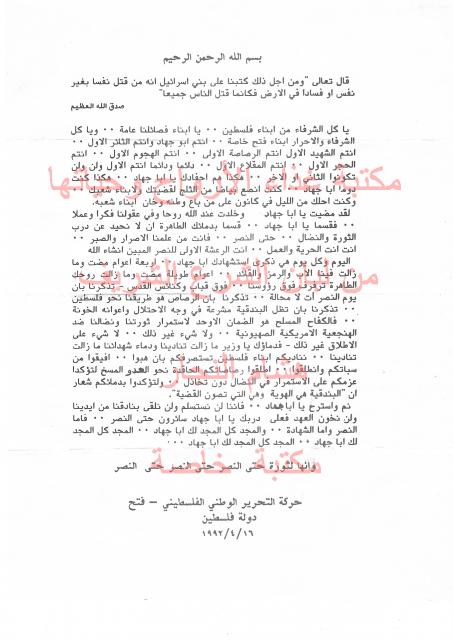 بسم الله الرحمن الرحيم
قال تعالى "ومن اجل ذلك كتبنا على بني اسرائيل انه من قتل نفسا بغير
نفس او فسادا في الارض فكانما قتل الناس جميعا"
صدق الله العظيم
يا كل الشرفاء من ابناء فلسطين ٠٠ يا ابناء فصائلنا عامة ٠٠ ويا كل
الشرفاء والاحرار ابناء فتح خاصة ٠٠ انتم ابو جهاد وانتم الثائر الاول ٠٠
انتم الشهيد الاول انتم الرصاصة الاولى ٠٠ انتم الهجوم الاول ٠٠ انتم
الحجر الاول ٠٠ انتم المقلاع الاول ٠٠ دائما ودائما انتم الاول ولن ولن
تكونوا الثاني او الاخر ٠٠ هكذا هم احفادك يا ابا جهاد ٠٠ هكذا كنت
دوما ابا جهاد ٠٠ كنت انصع بياضا من الثلج لقضيتك ولابناء شعبك ٠٠
وكنت احلك من الليل في كانون على من باع وطنه وخان ابناء شعبه.
لقد مضيت يا ابا جهاد وخلدت عند الله روحا وفي عقولنا فكرا وعملا
٠٠ فقسما يا ابا جهاد ٠٠ قسما بدمائك الطاهرة ان لا نحيد عن درب
الثورة والنضال ٠٠ حتى النصر ٠٠ فانت من علمنا الاصرار والصبر ٠٠
انت انت الحرية والعمل ٠٠ انت الرعشة الاولى للنصر المبين انشاء الله
اليوم وكل يوم هي ذكرى استشهادك ابا جهاد ٠٠ اربعة اعوام مضت وما
زالت فينا الاب والرمز والقائد ٠٠ اعوام طويلة مضت وما زالت روحك
الطاهرة ترفرف فوق رؤوسنا ٠٠ فوق قباب وكنائس القدس ٠٠ تذكرنا بان
يوم النصر آت لا محالة ٠٠ تذكرنا بان الرصاص هو طريقنا نحو فلسطين
٠٠ تذكرنا بان تظل البندقية مشرعة في وجه الاحتلال واعوانه الخونة
٠٠ فالكفاح المسلح هو الضمان الاوحد لاستمرار ثورتنا ونضالنا ضد
الهنجعية الامريكية الصهيونية ٠٠ ولا شيء غير ذلك ٠٠ لا شيء على
الاطلاق غير ذلك - فدماؤك يا وزير ما زالت تنادينا ودماء شهدائنا ما زالت
تنادينا ٠٠ نناديكم ابناء فلسطين تستصرفكم بان هبوا ٠٠ افيقوا من
سباتكم وانطلقوا ٠٠ اطلقوا رصاصاتكم الحاقدة نحو العدو المسخ لتؤكدا
عزمكم على الاستمرار في النضال دون تخاذل ٠٠ ولتؤكدوا بدمائكم شعار
ان "البندقية هي الهوية وهي التي تصون القضية".
نم واسترح يا ابا جهاد ٠٠ فاننا لن نستسلم ولن نلقي بنادقنا من ايدينا
ولن نخون العهد فعلى دربك يا ابا جهاد سائرون حتى النصر ٠٠ فاما
النصر واما الشهادة ٠٠ والمجد كل المجد لك ابا جهاد ٠٠ المجد كل المجد
لك ابا جهاد ٠٠ المجد كل المجد لك ابا جهاد ٠٠٠
وانها لثورة حتى النصر حتى النصر حتى النصر
حركة التحرير الوطني الفلسطيني - فتح
دولة فلسطين
١٩٩٢/٤/١٦
هشام النجار
مكتبة خاصة